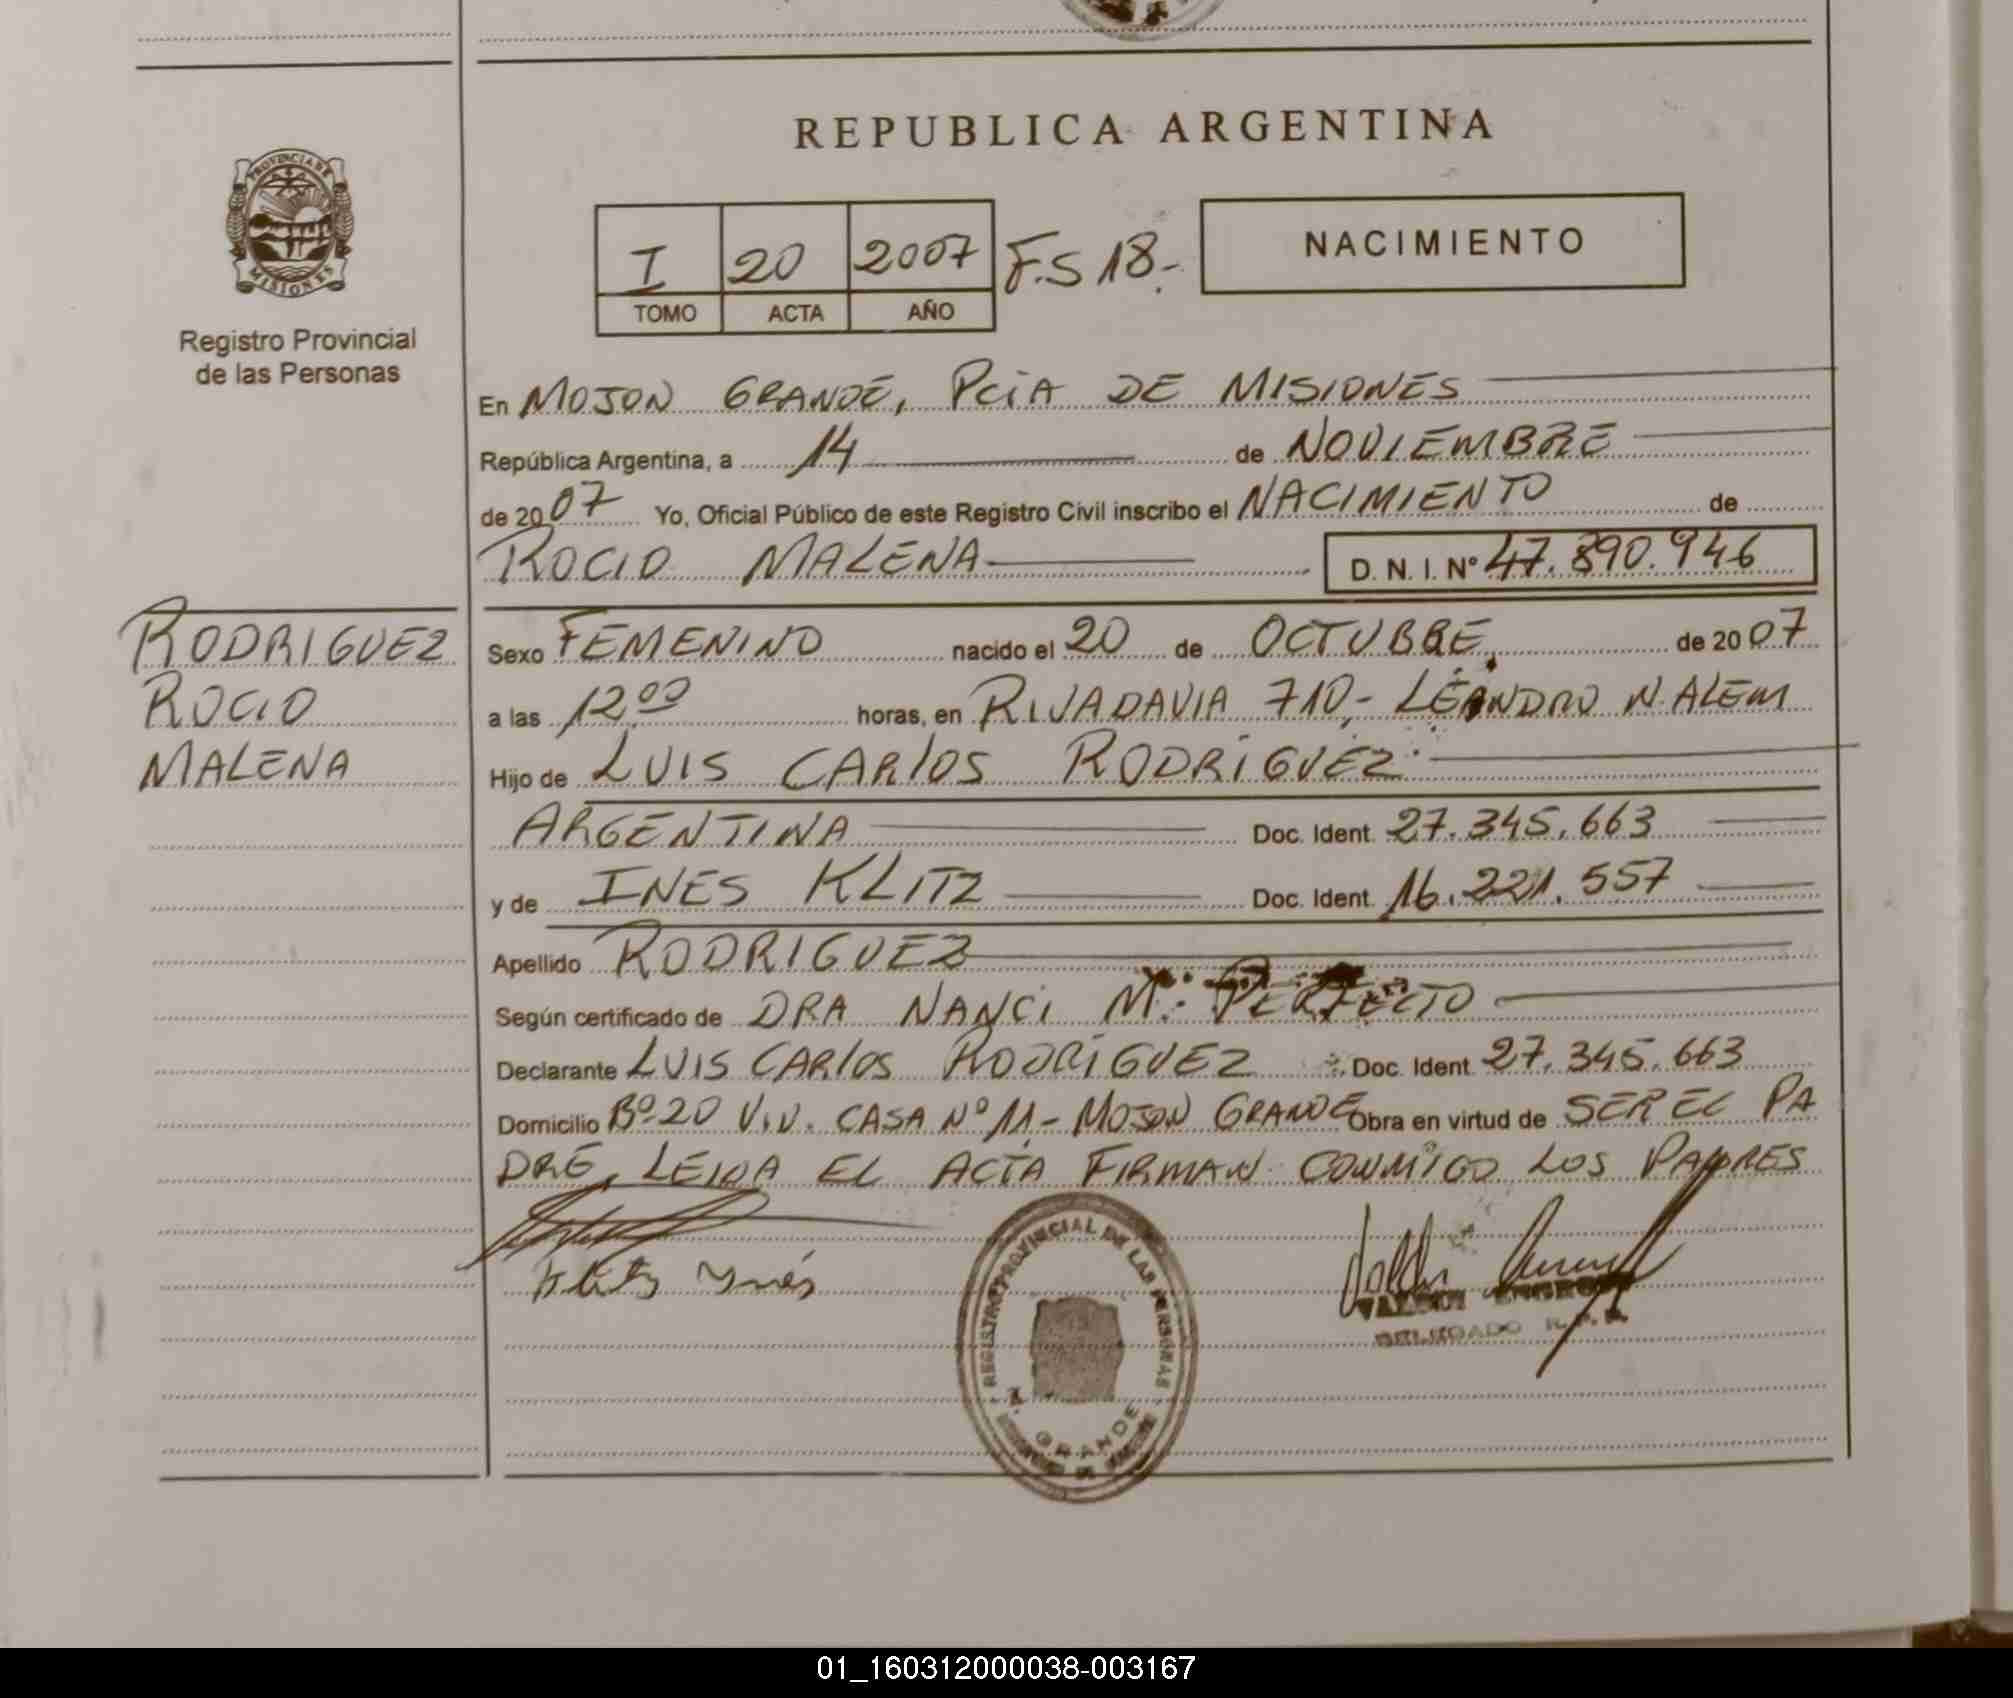 PROVINCIA DE
MISIONES
Registro Provincial
de las Personas
REPUBLICA ARGENTINA
I 20 2007 F.S 18.-
TOMO ACTA AÑO
NACIMIENTO
En MOJON GRANDE, PCIA DE MISIONES
República Argentina, a 14 de NOVIEMBRE
de 2007 Yo, Oficial Público de este Registro Civil inscribo el NACIMIENTO de
ROCIO MALENA D. N. I. Nº 47.890.946
RODRIGUEZ
ROCIO
MALENA
Sexo FEMENINO nacido el 20 de OCTUBRE de 2007
a las 12.00 horas, en RIVADAVIA 710,- LEANDRO N. ALEM
Hijo de LUIS CARLOS RODRIGUEZ
ARGENTINA Doc. Ident. 27.345.663
y de INES KLITZ Doc. Ident. 16.221.557
Apellido RODRIGUEZ
Según certificado de DRA NANCI M. PERFECTO
Declarante LUIS CARLOS RODRIGUEZ Doc. Ident. 27.345.663
Domicilio Bº 20 V.V. CASA Nº 11.- MOJON GRANDE Obra en virtud de SER EL PA
DRE, LEIDA EL ACTA FIRMAN CONMIGO LOS PADRES
Klitz Ynés
REGISTRO PROVINCIAL DE LAS PERSONAS
GRANDE
DELEGADO R.P.P.
01_160312000038-003167